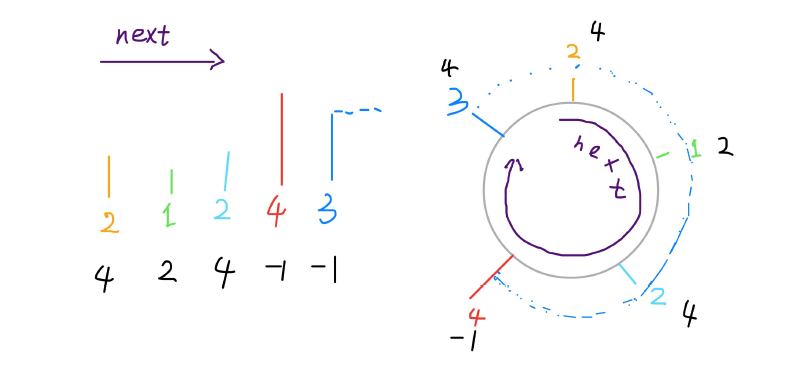 next
2 1 2 4 3
4 2 4 -1 -1
4
2
4
3
1 2
next
2 4
4
-1